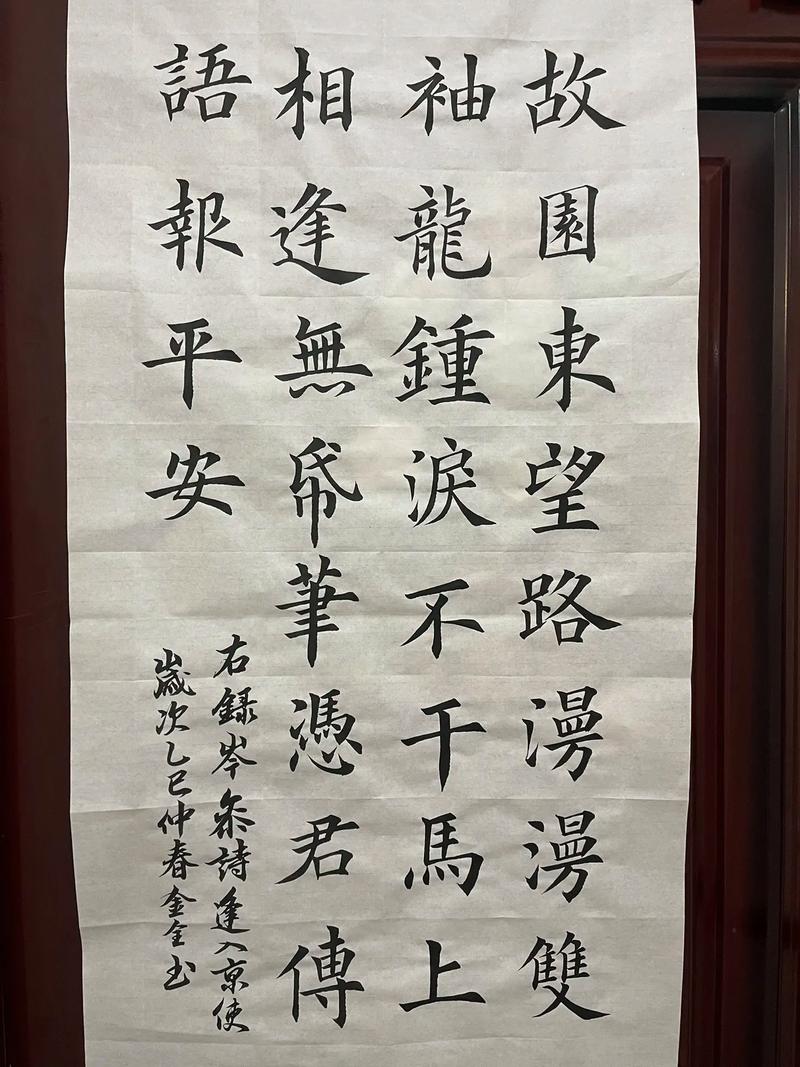 故園東望路漫漫雙
袖龍鍾淚不干馬上
相逢無帋筆憑君傳
語報平安
右録岑叅詩逢入京使
歲次乙巳仲春金全玉